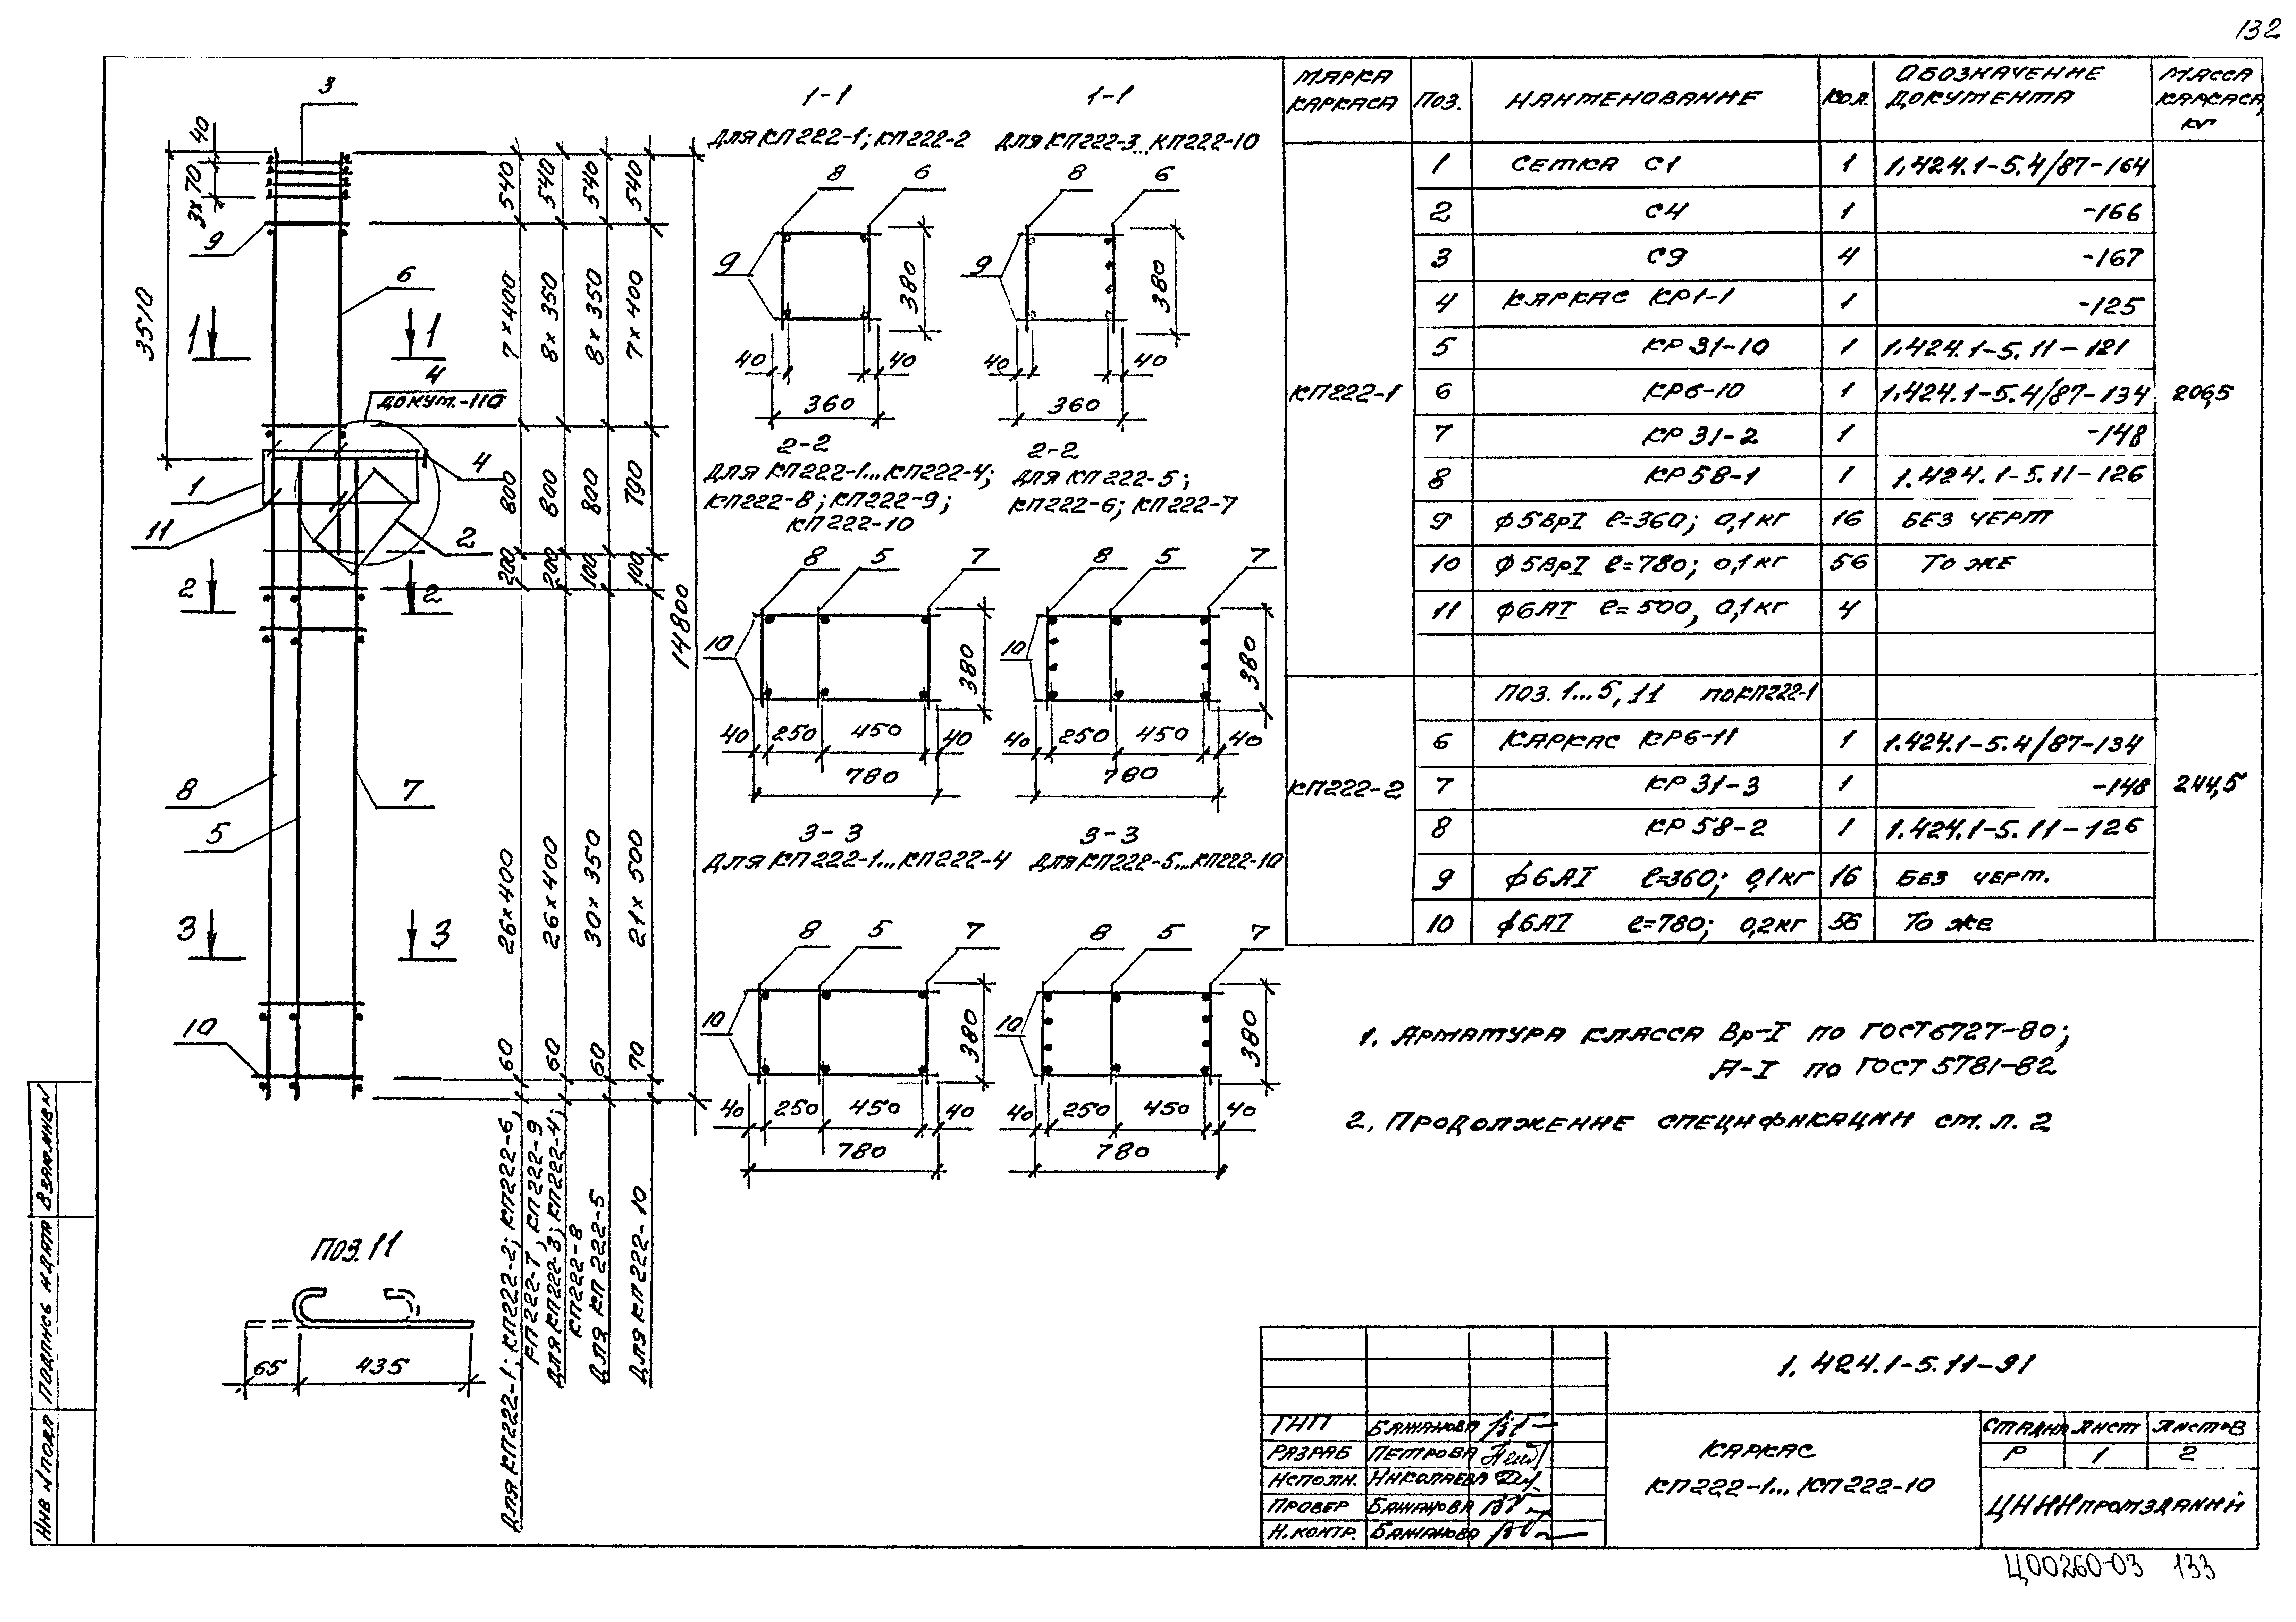 132
3
40
3×70
3510
9
6
1 1
4
ДОКУМ.-110
4
1
11
2
2 2
8
7
5
3 3
10
540
540
540
540
7×400
8×350
8×350
7×400
800
800
800
790
200
200
100
100
14800
26×400
26×400
30×350
21×500
60
60
60
70
ДЛЯ КП222-1; КП222-2; КП222-6,
КП222-7, КП222-9
ДЛЯ КП222-3; КП222-4;
КП222-8
ДЛЯ КП 222-5
ДЛЯ КП222-10
ПОЗ.11
65 435
1-1
ДЛЯ КП222-1; КП222-2
8 6
9
380
40 40
360
1-1
ДЛЯ КП222-3...КП222-10
8 6
9
380
40 40
360
2-2
ДЛЯ КП222-1...КП222-4;
КП222-8; КП222-9;
КП222-10
8 5 7
10
380
40 250 450 40
780
2-2
ДЛЯ КП222-5;
КП222-6; КП222-7
8 5 7
10
380
40 250 450 40
780
3-3
ДЛЯ КП222-1...КП222-4
8 5 7
10
380
40 250 450 40
780
3-3
ДЛЯ КП222-5...КП222-10
8 5 7
10
380
40 250 450 40
780
МАРКА КАРКАСА ПОЗ. НАИМЕНОВАНИЕ КОЛ. ОБОЗНАЧЕНИЕ ДОКУМЕНТА МАССА КАРКАСА, КГ
1 СЕТКА С1 1 1.424.1-5.4/87-164
2 С4 1 -166
3 С9 4 -167
4 КАРКАС КР1-1 1 -125
5 КР 31-10 1 1.424.1-5.11-121
КП222-1 6 КР6-10 1 1.424.1-5.4/87-134 206,5
7 КР 31-2 1 -148
8 КР 58-1 1 1.424.1-5.11-126
9 ф5ВрI ℓ=360; 0,1кг 16 БЕЗ ЧЕРТ
10 ф5ВрI ℓ=780; 0,1кг 56 ТО ЖЕ
11 ф6АI ℓ=500, 0,1кг 4
ПОЗ. 1...5, 11 ПО КП222-1
6 КАРКАС КР6-11 1 1.424.1-5.4/87-134
КП222-2 7 КР 31-3 1 -148 244,5
8 КР 58-2 1 1.424.1-5.11-126
9 ф6АI ℓ=360; 0,1кг 16 БЕЗ ЧЕРТ.
10 ф6АI ℓ=780; 0,2кг 56 ТО ЖЕ
1. АРМАТУРА КЛАССА Вр-I ПО ГОСТ 6727-80;
А-I ПО ГОСТ 5781-82
2. ПРОДОЛЖЕНИЕ СПЕЦИФИКАЦИИ СТ. Л. 2
1.424.1-5.11-91
ГИП БАЖАНОВА
РАЗРАБ ПЕТРОВА
ИСПОЛН. НИКОЛАЕВА
ПРОВЕР БАЖАНОВА
Н.КОНТР. БАЖАНОВА
КАРКАС
КП222-1...КП222-10
СТАДИЯ ЛИСТ ЛИСТОВ
Р 1 2
ЦНИИПРОМЗДАНИЙ
ИНВ N ПОДЛ ПОДПИСЬ И ДАТА ВЗАМ.ИНВ N
Ц00260-03 133